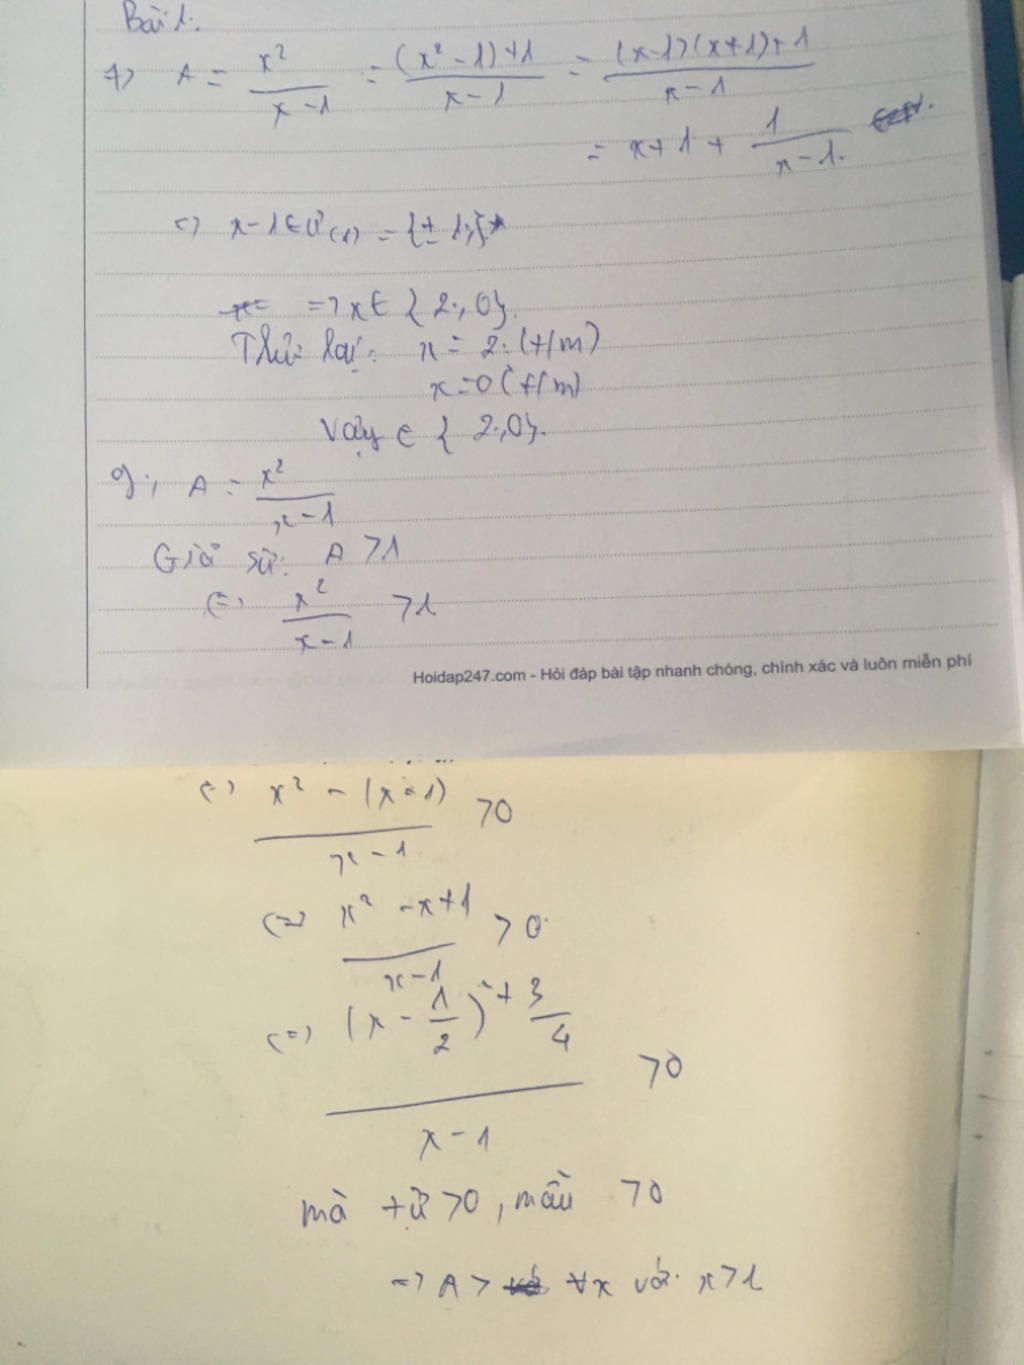 Bài 1.
f) A = x²/(x-1) = ((x²-1)+1)/(x-1) = ((x-1)(x+1)+1)/(x-1)
= x+1+ 1/(x-1).
x-1∈Ư(1) = {± 1;}
=> x∈ {2;,0}.
Thử lại: x = 2.(t/m)
x=0(t/m)
Vậy ∈ { 2;,0}.
g; A = x²/(x-1)
Giả sử: A >1
(=) x²/(x-1) >1
Hoidap247.com - Hỏi đáp bài tập nhanh chóng, chính xác và luôn miễn phí
(=) (x² - (x-1))/(x-1) >0
(=) (x² -x+1)/(x-1) >0
(=) ((x - 1/2)² + 3/4)/(x-1) >0
mà tử >0, mẫu >0
=> A > ∀x với x>1